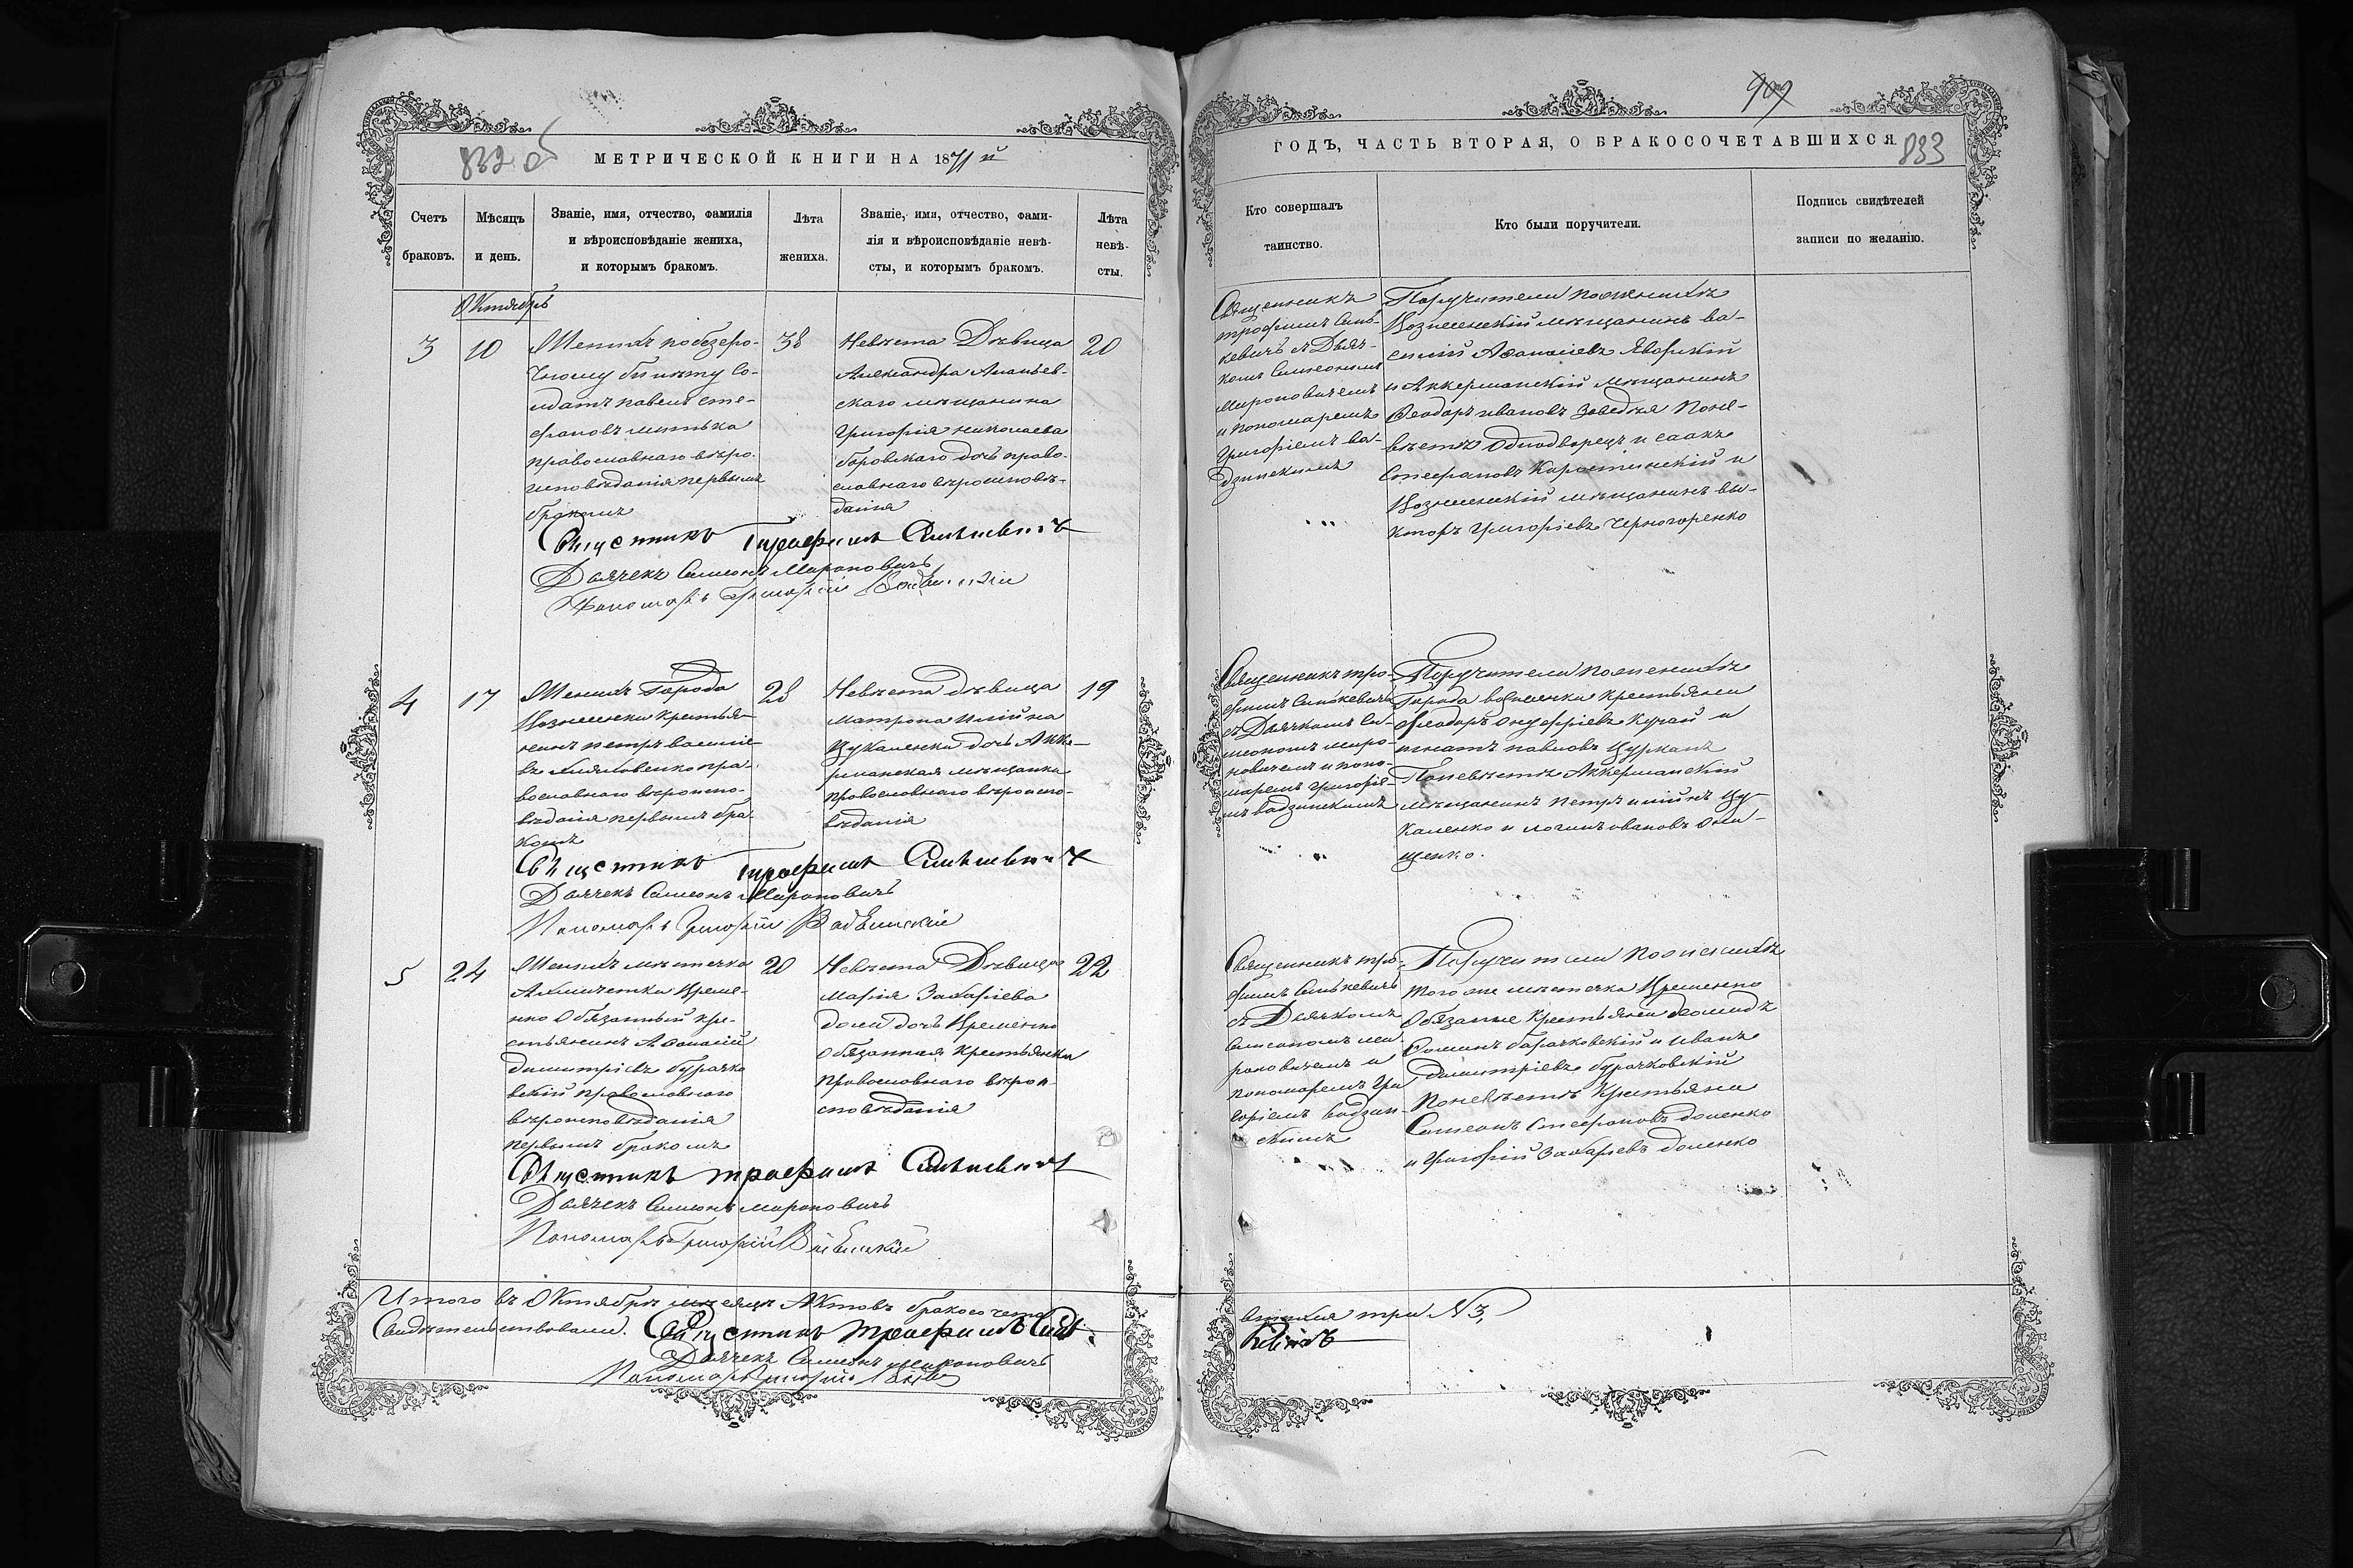 832 об
МЕТРИЧЕСКОЙ КНИГИ НА 1871 й
Счетъ браковъ.
Мѣсяцъ и день.
Званіе, имя, отчество, фамилія
и вѣроисповѣданіе жениха,
и которымъ бракомъ.
Лѣта жениха.
Званіе, имя, отчество, фами-
лія и вѣроисповѣданіе невѣ-
сты, и которымъ бракомъ.
Лѣта невѣ-
сты.
Октябрь
3
10
Женихъ по безсро-
чному билету Со-
лдатъ павелъ сте-
фановъ митька
православнаго вѣро-
исповѣданія первымъ
бракомъ
38
Невѣста Дѣвица
Александра Ананьев-
скаго мѣщанина
Григорія николаева
боровскаго дочь право-
славнаго вѣроисповѣ-
данія
20
Священникъ Трофимъ Синькевичъ
Дьячекъ Симеонъ Мироновичъ
Пономарь Григорій
4
17
Женихъ Города
Вознесенки крестья-
нинъ петръ василіе-
въ пра-
вославнаго вѣроиспо-
вѣданія первымъ бра-
комъ
28
Невѣста дѣвица
матрона илійна
Цукаленки дочь Акке-
рманская мѣщанка
православнаго вѣроиспо-
вѣданія
19
Священникъ Трофимъ Синькевичъ
Дьячекъ Симеонъ Мироновичъ
Пономарь Григорій Вадзинскій
5
24
Женихъ мѣстечка
Ахмечетки Време-
нно Обязанный кре-
стьянинъ Афанасій
димитріевъ бурачко
вскій православнаго
вѣроисповѣданія
первымъ бракомъ
20
Невѣста Дѣвица
Марія Захаріева
дочь Временно
Обязанная крестьянка
православнаго вѣрои-
сповѣданія
22
Священникъ трофимъ Синькевичъ
Дьячекъ Симеонъ мироновичъ
Пономарь Григорій
Итого въ Октябрѣ мѣсяцѣ Актовъ бракосочета
Свидѣтельствовали. Священникъ трофимъ Синь
Дьячекъ Симеонъ мироновичъ
Пономарь Григорій
909
ГОДЪ, ЧАСТЬ ВТОРАЯ, О БРАКОСОЧЕТАВШИХСЯ.
833
Кто совершалъ
таинство.
Кто были поручители.
Подпись свидѣтелей
записи по желанію.
Священникъ
трофимъ Синь-
кевичъ съ Дьяч-
комъ Симеономъ
Мироновичемъ
и пономаремъ
Григоріемъ ва-
дзинскимъ
Поручители по женихѣ
Вознесенскій мѣщанинъ ва-
силій Афанасіевъ Яворскій
и Аккерманскій мѣщанинъ
Феодоръ ивановъ Заведѣя Поне-
вѣстѣ Однодворецъ исаакъ
Стефановъ Коростинскій и
Вознесенскій мѣщанинъ ви-
кторъ Григоріевъ Черногоренко
Священникъ тро-
фимъ Синькевичъ
съ Дьячкомъ Си-
меономъ миро-
новичемъ и поно-
маремъ григоріе-
мъ вадзинскимъ
Поручители по женихѣ
Города вознесенки крестьяни
Феодоръ Онуфріевъ Курай и
игнатъ павловъ Цурканъ
По невѣстѣ Аккерманскій
мѣщанинъ петръ илійнъ Цу-
каленко и логинъ ивановъ Они-
щенко.
Священникъ тро-
фимъ Синькевичъ
съ Дьячкомъ
Симеономъ ми-
роновичемъ и
пономаремъ Гри
горіемъ вадзин-
скимъ
Поручители по женихѣ
того же мѣстечка Временно
Обязаные крестьяни
Фоминъ бурачковскій и иванъ
димитріевъ бурачковскій
По невѣстѣ крестьяни
Симеонъ Стефановъ доленко
и Григорій Захаріевъ доленко
вшихся три №3,
кевичъ